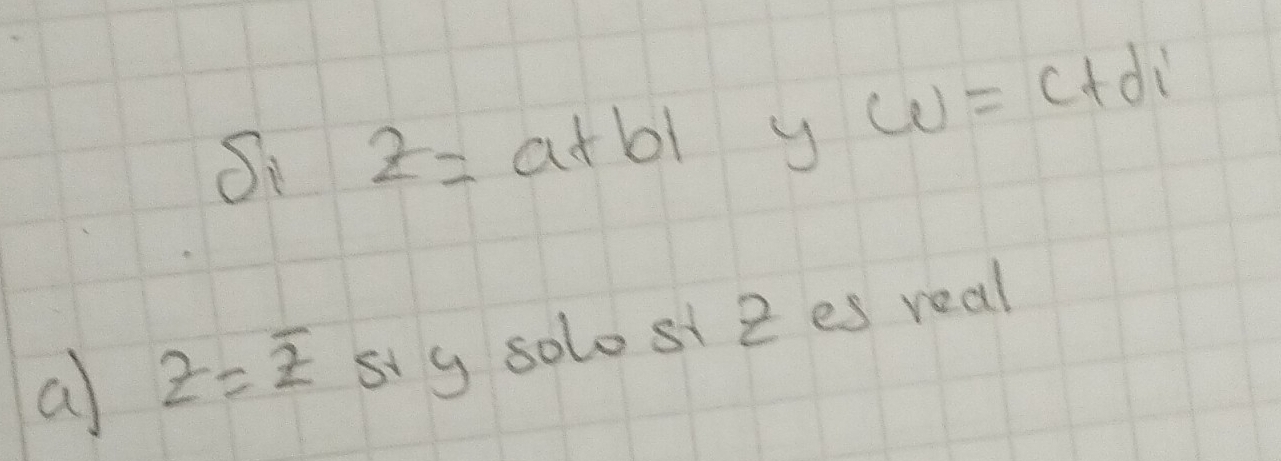 Si z = a+bi y w = c+di
a) z = z̅ si y solo si z es real